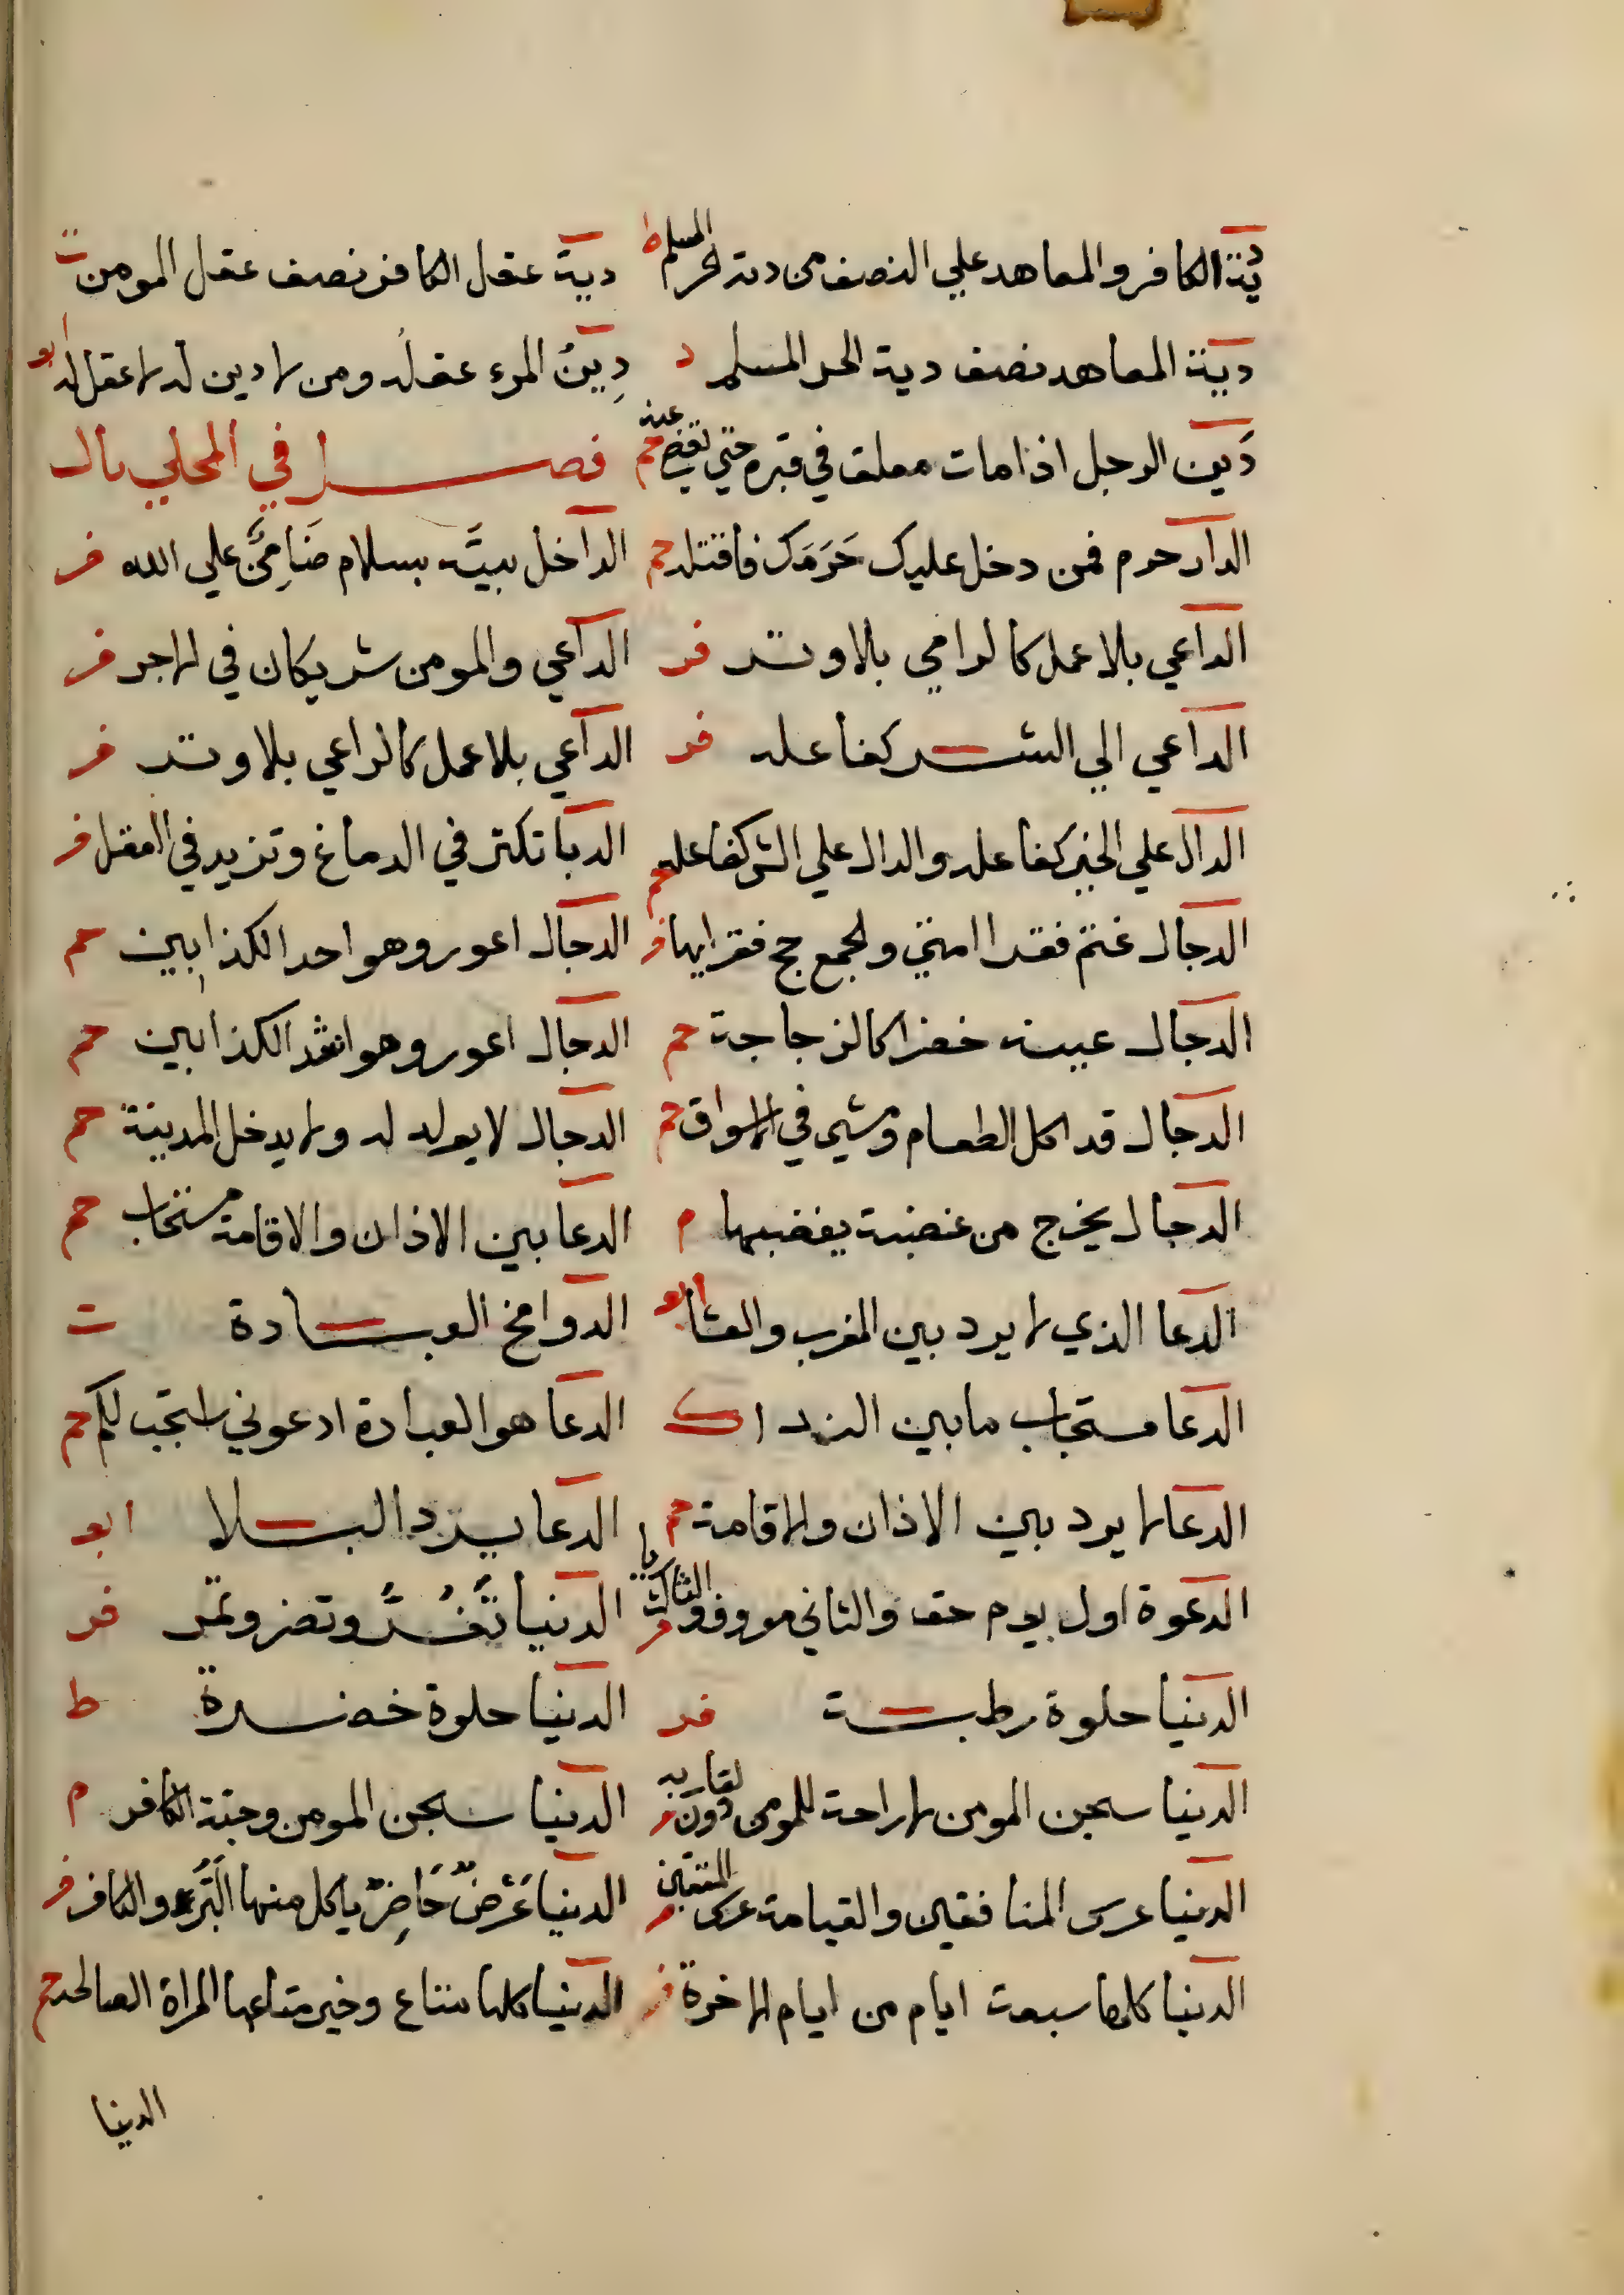 دية الكافر والمعاهد علي النصف من دية الحر المسلم ط دية عقل الكافر نصف عقل المومن ت
دية المعاهد نصف دية الحر المسلم د دِينُ المرء عقله ومن لا دين له لا عقل له ابو
دَين الرجل اذا مات معلق في قبره حتي يقضي عنه حم فصل في المحلي بال
الدار حرم فمن دخل عليك حَرَمَك فاقتله حم الداخل بيته بسلام ضَامِنٌ علي الله فر
الداعي بلا عمل كالرامي بلا وتر فر الداعي والمومن شريكان في الاجر فر
الداعي الي الشر كفاعله فر الداعي بلا عمل كالراعي بلا وتر فر
الدال علي الخير كفاعله والدال علي الشر كفاعله حم الدبا تكثر في الدماغ وتزيد في العقل فر
الدجال اعور وهو احد الكذابين حم
الدجال عينه خضرا كالزجاجة حم الدجال اعور وهو اشد الكذابين حم
الدجال قد اكل الطعام ومشي في الاسواق حم الدجال لا يولد له ولا يدخل المدينة حم
الدجال يخرج من غضبة يغضبها م الدعا بين الاذان والاقامة مستجاب حم
الدعا الذي لا يرد بين المغرب والعشا ابو الدوا مخ العبادة ت
الدعا مستجاب ما بين الندا ك الدعا هو العبادة ادعوني استجب لكم حم
الدعا لا يرد بين الاذان والاقامة حم الدعا يرد البلا ابو
الدعوة اول يوم حق والثاني معروف والثالث ريا فر الدنيا تَغُرُّ وتضر وتمر فر
الدنيا حلوة رطبة فر الدنيا حلوة خضرة ط
الدنيا سجن المومن لا راحة للمومن دون لقا ربه فر الدنيا سجن المومن وجنة الكافر م
الدنيا عرس المنافقين والقيامة عرس المتقين فر الدنيا عَرَضٌ حَاضِرٌ ياكل منها البَرُّ والكافر فر
الدنيا كلها سبعة ايام من ايام الاخرة فر الدنيا كلها متاع وخير متاعها المراة الصالحة حم
الدنيا